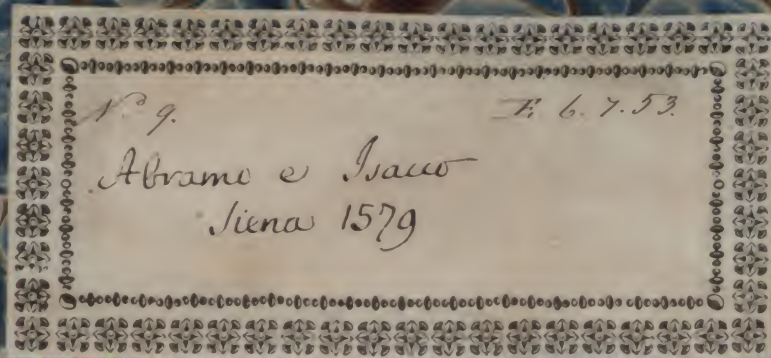 No 9. E. 6. 7. 53.
Abramo e Isacco
Siena 1579